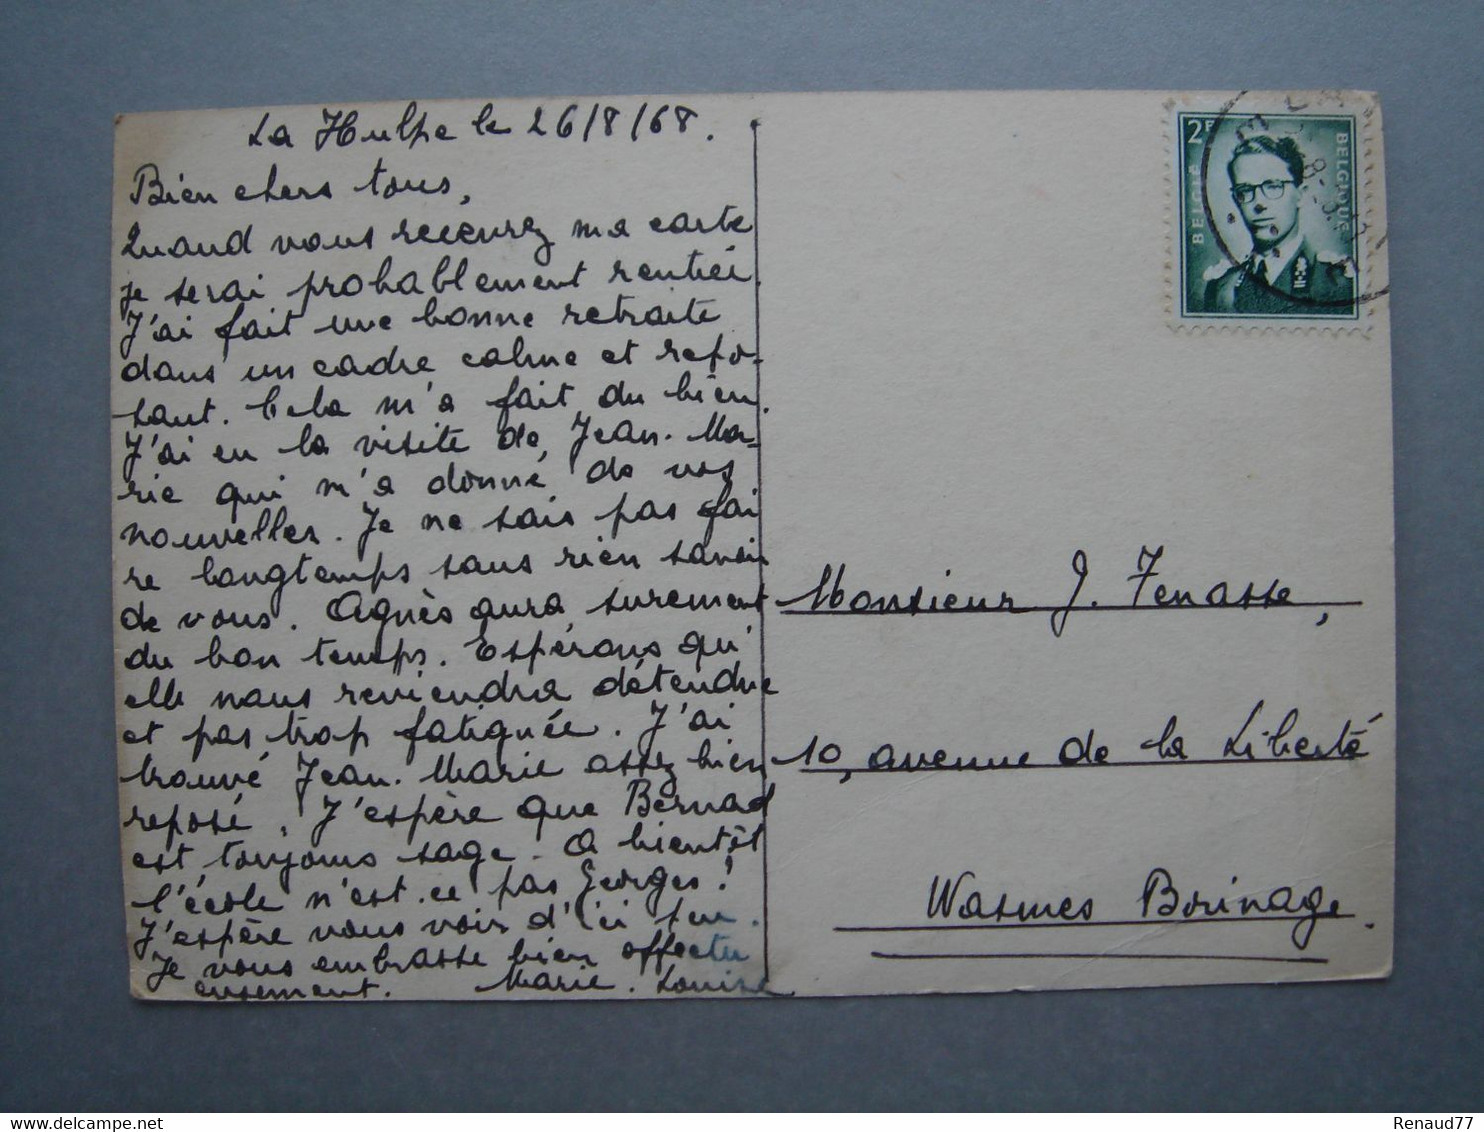 La Hulpe le 26/8/68.
Bien chers tous,
Quand vous recevrez ma carte
je serai probablement rentrée.
J'ai fait une bonne retraite
dans un cadre calme et repo-
sant. Cela m'a fait du bien.
J'ai eu la visite de Jean-Ma-
rie qui m'a donné de vos
nouvelles. Je ne sais pas fai
re longtemps sans rien savoir
de vous. Agnès aura surement
du bon temps. Espérons qu'
elle nous reviendra détendue
et pas trop fatiguée. J'ai
trouvé Jean-Marie assez bien
reposé. J'espère que Bernad
est toujours sage. A bientôt
l'école n'est-ce pas Georges!
J'espère vous voir d'ici peu.
Je vous embrasse bien affectu
eusement. Marie-Louise
2F
BELGIE
BELGIQUE
Monsieur J. Fenasse,
10, avenue de la Liberté
Wasmes Borinage.
Renaud77